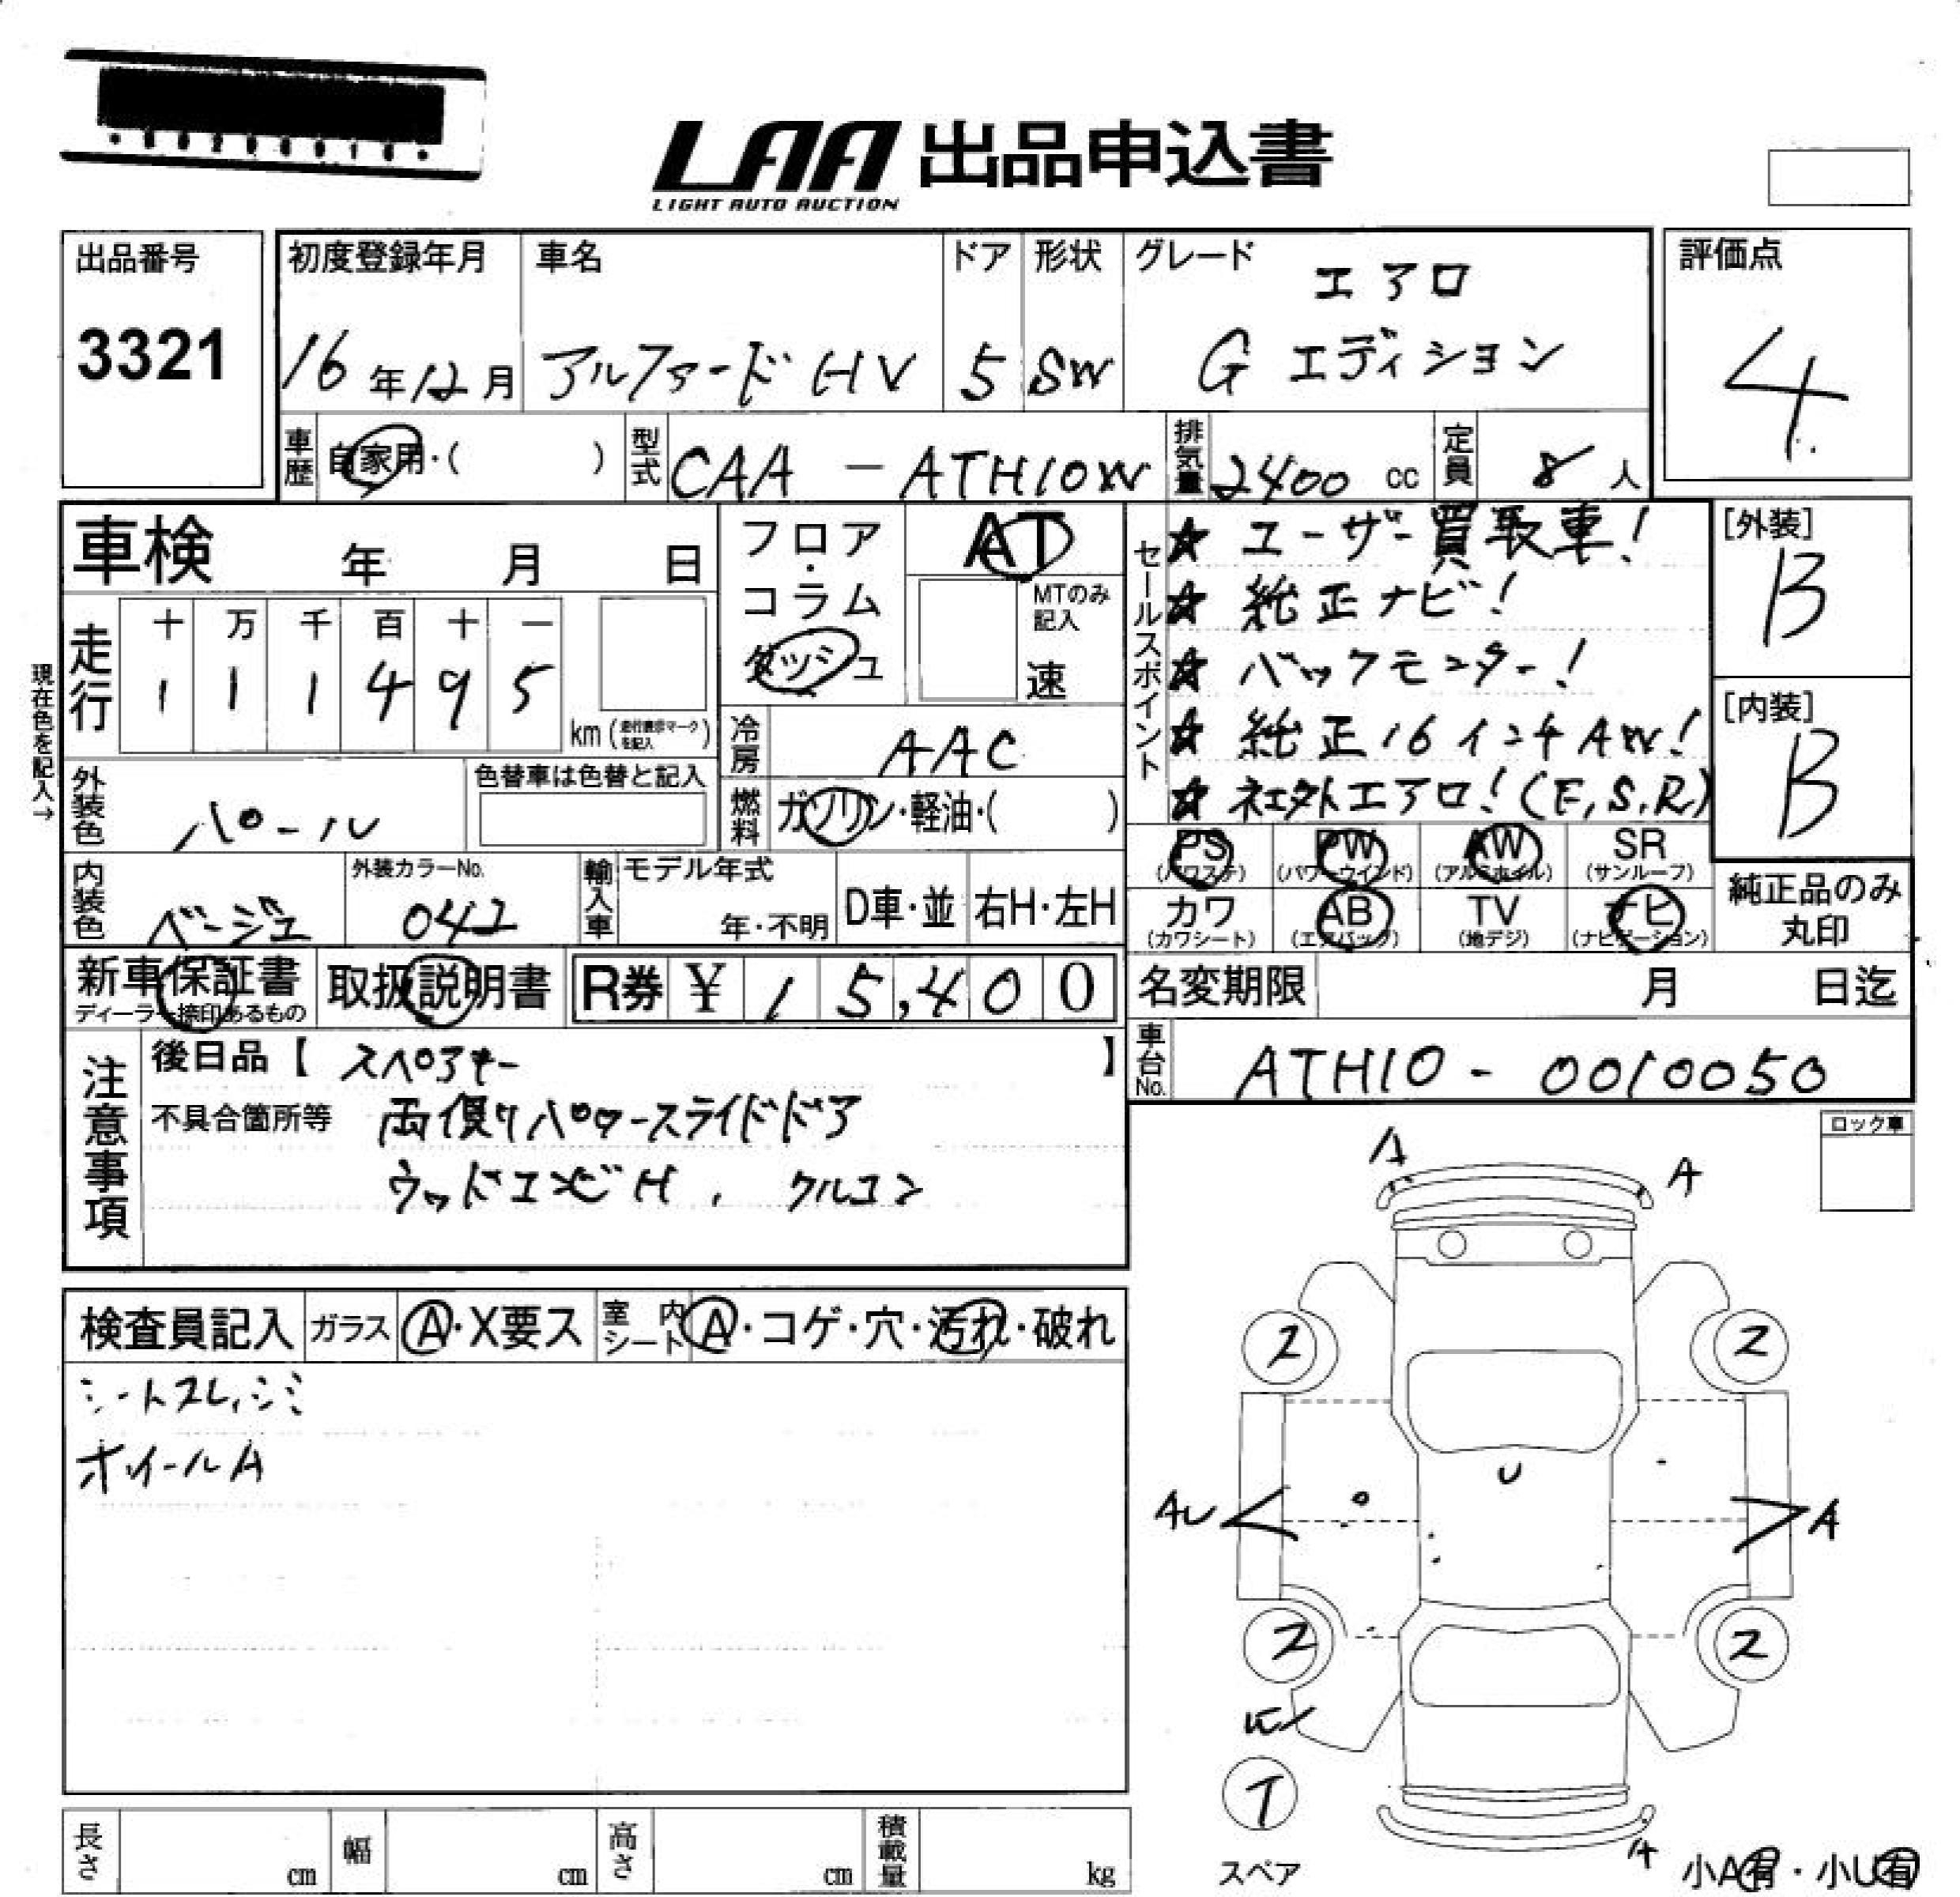 LAA 出品申込書
LIGHT AUTO AUCTION
出品番号
3321
初度登録年月
16年12月
車名
アルファードHV
ドア
5
形状
SW
グレード
エアロ
Gエディション
評価点
4
車歴 自家用・( )
型式 CAA-ATH10W
排気量 2400 cc
定員 8 人
車検 年 月 日
走行
十 万 千 百 十 一
1 1 1 4 9 5
km(走行表示マークを記入)
現在色を記入→
フロア・コラム
ダッシュ
AT
MTのみ記入
速
冷房 AAC
燃料 ガソリン・軽油・( )
セールスポイント
☆ ユーザー買取車!
☆ 純正ナビ!
☆ バックモニター!
☆ 純正16インチAW!
☆ 社外エアロ!(F,S,R)
[外装]
B
[内装]
B
外装色 パール
色替車は色替と記入
内装色 ベージュ
外装カラーNo.
042
輸入車
モデル年式
年・不明
D車・並
右H・左H
PS (パワステ)
PW (パワーウインド)
AW (アルミホイル)
SR (サンルーフ)
カワ (カワシート)
AB (エアバッグ)
TV (地デジ)
ナビ (ナビゲーション)
純正品のみ
丸印
新車保証書
ディーラー捺印あるもの
取扱説明書
R券 ¥ 15,400
名変期限 月 日迄
車台No. ATH10-0010050
注意事項
後日品【 スペアキー 】
不具合箇所等 両側パワースライドドア
ウッドコンビH, クルコン
ロック車
検査員記入
ガラス A・X要ス
室内シート A・コゲ・穴・汚れ・破れ
シートスレ,シミ
ホイールA
A
A
2
2
U
AU
A
2
2
T
スペア
A
小A有・小U有
長さ cm
幅 cm
高さ cm
積載量 kg